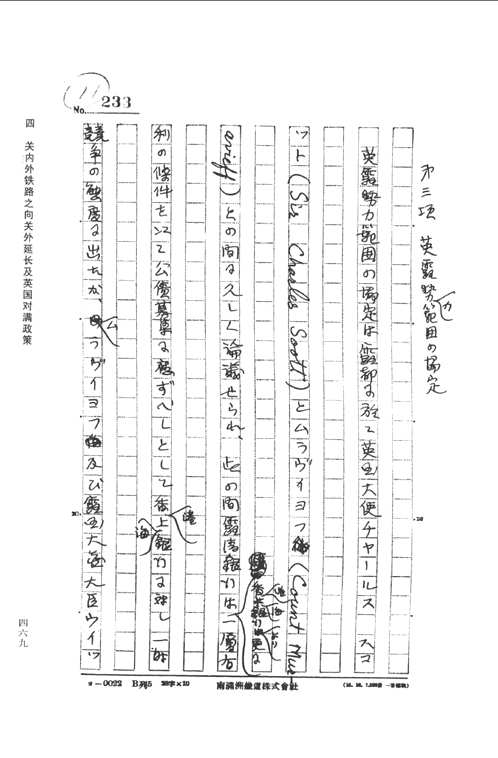 11
No. 233
第三項 英露勢力範囲の協定
英露勢力範囲の協定は露都に於て英国大使チャールス スコ
ット(Sir Charles Scott)とムラヴイヨフ(Count Mur-
avieff)との間に久しく論議せられ、此の間露清銀行は一層有
利の條件を以て公債募集に應ずべしとして香上銀行に対し一時
競争の態度に出たが、ムラヴイヨフ及び露国大蔵大臣ウイツ
四 关内外铁路之向关外延长及英国对满政策
四六九
ヨ-0022 B列5 28字×10 南滿洲鐵道株式會社